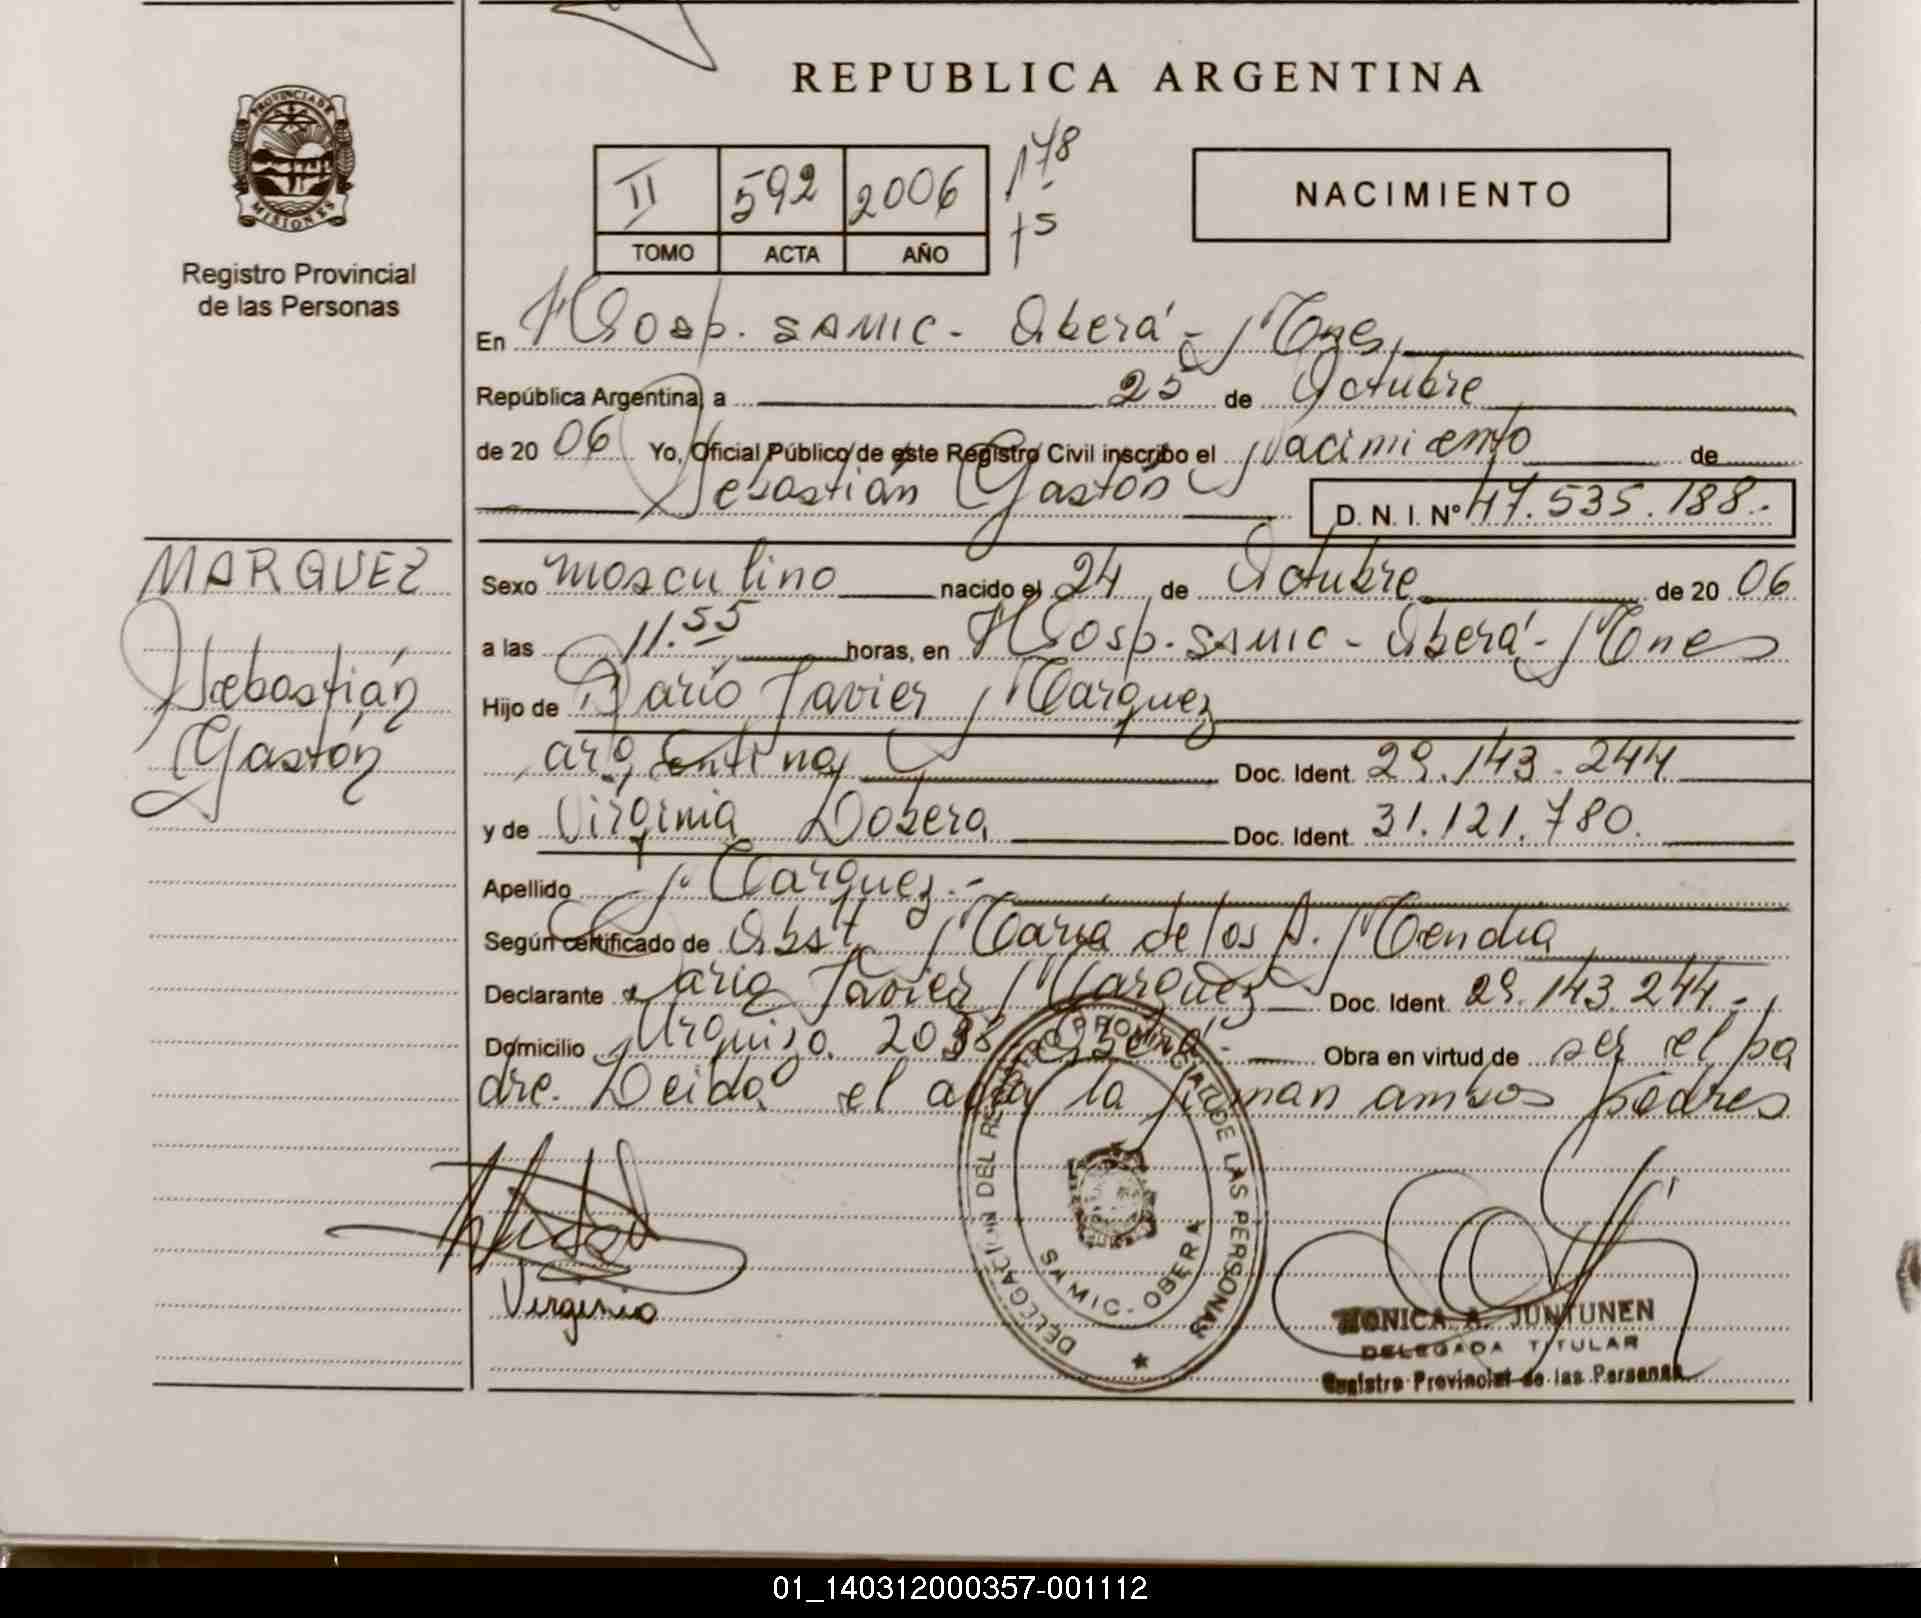 REPUBLICA ARGENTINA
PROVINCIA DE
MISIONES
Registro Provincial
de las Personas
II 592 2006
TOMO ACTA AÑO
178
NACIMIENTO
En Hosp. SAMIC - Oberá - Mnes
República Argentina, a 25 de Octubre
de 20 06 Yo, Oficial Público de este Registro Civil inscribo el Nacimiento de
Sebastián Gastón D. N. I. Nº 47.535.188.-
MARQUEZ
Sebastián
Gastón
Sexo masculino nacido el 24 de Octubre de 20 06
a las 11.55 horas, en Hosp. SAMIC - Oberá - Mnes
Hijo de Darío Javier Marquez
argentino Doc. Ident. 29.143.244
y de Virginia Doc. Ident. 31.121.780.
Apellido Marquez.-
Según certificado de Obst. María de los A.
Declarante Darío Javier Marquez Doc. Ident. 29.143.244.-
Domicilio Urquiza Oberá.- Obra en virtud de ser el pa
dre. Leida el acta la firman ambos padres
Virginia
DELEGACION DEL REGISTRO PROVINCIAL DE LAS PERSONAS
SAMIC - OBERA
MONICA A. JUNTUNEN
DELEGADA TITULAR
Registro Provincial de las Personas
01_140312000357-001112